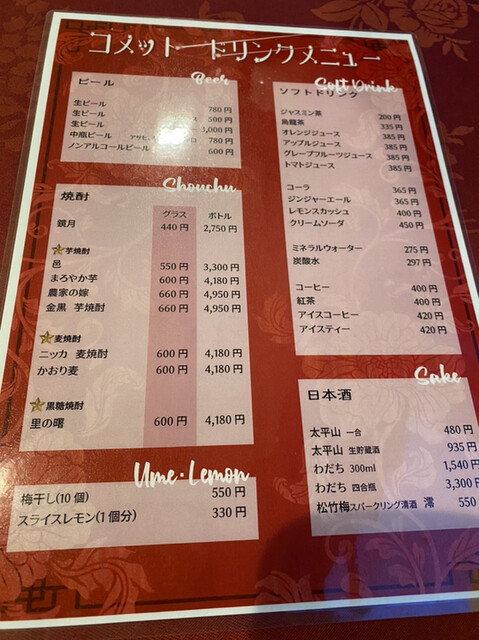 コメット ドリンクメニュー
ビール Beer
生ビール 780円
生ビール 500円
生ビール 3,000円
中瓶ビール 780円
ノンアルコールビール 600円
焼酎 Shouchu
グラス ボトル
鏡月 440円 2,750円
芋焼酎
邑 550円 3,300円
まろやか芋 600円 4,180円
農家の嫁 660円 4,950円
金黒 芋焼酎 660円 4,950円
麦焼酎
ニッカ 麦焼酎 600円 4,180円
かおり麦 600円 4,180円
黒糖焼酎
里の曙 600円 4,180円
Ume・Lemon
梅干し(10個) 550円
スライスレモン(1個分) 330円
Soft Drink
ソフトドリンク
ジャスミン茶 200円
烏龍茶 335円
オレンジジュース 385円
アップルジュース 385円
グレープフルーツジュース 385円
トマトジュース 385円
コーラ 365円
ジンジャーエール 365円
レモンスカッシュ 400円
クリームソーダ 450円
ミネラルウォーター 275円
炭酸水 297円
コーヒー 400円
紅茶 400円
アイスコーヒー 420円
アイスティー 420円
Sake
日本酒
太平山 一合 480円
太平山 生貯蔵酒 935円
わだち 300ml 1,540円
わだち 四合瓶 3,300円
松竹梅スパークリング清酒 澪 550